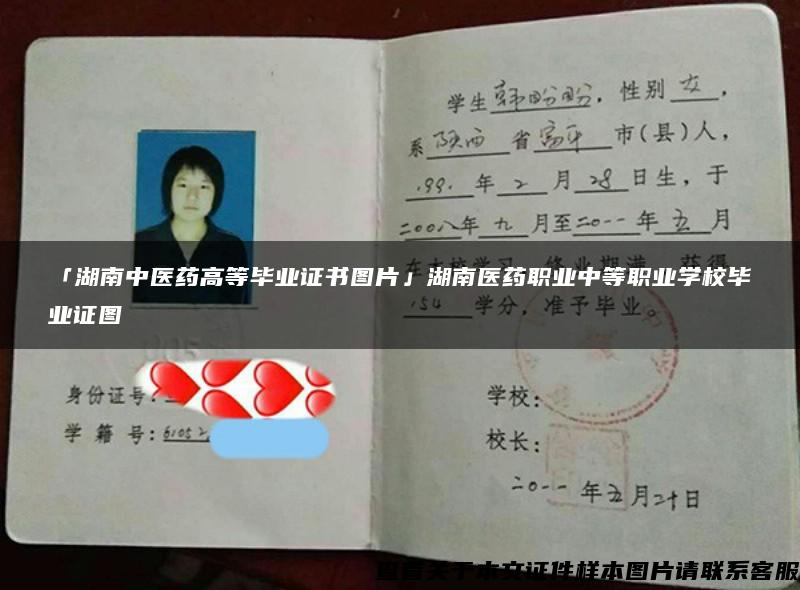 学生韩盼盼，性别女，
系陕西省富平市(县)人，
1991年2月28日生，于
二00八年九月至二0一一年五月
在本校学习，修业期满，获得
154学分，准予毕业。
「湖南中医药高等毕业证书图片」湖南医药职业中等职业学校毕
业证图
身份证号:
学籍号:61052
学校:
校长:
二0一一年五月二十日
查看关于本文证件样本图片请联系客服